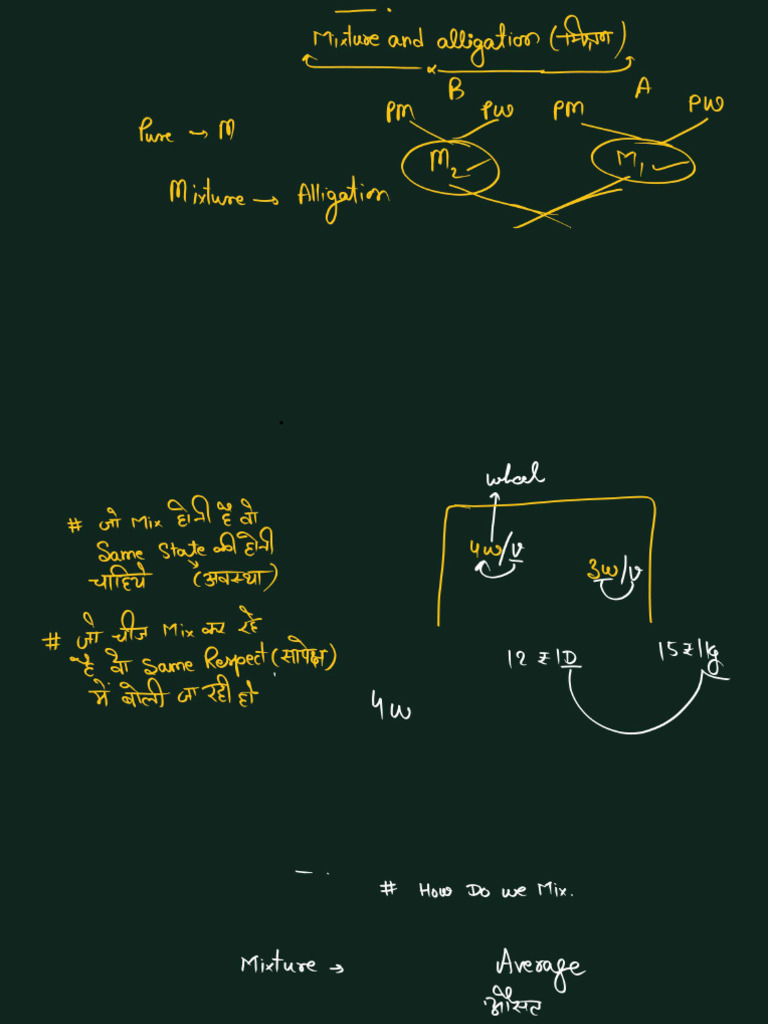 Mixture and alligation (मिश्रण)
B A
PM PW PM PW
Pure → M
M2 M1
Mixture → Alligation
wheel
# जो Mix होनी है वो
Same State की होनी
चाहिये (अवस्था)
4w/v
3w/v
# जो चीज Mix कर रहे
है वो Same Respect (सापेक्ष)
में बोली जा रही हो
12 ₹ 1D 15 ₹ 1Kg
4w
# How Do we Mix.
Mixture → Average
औसत